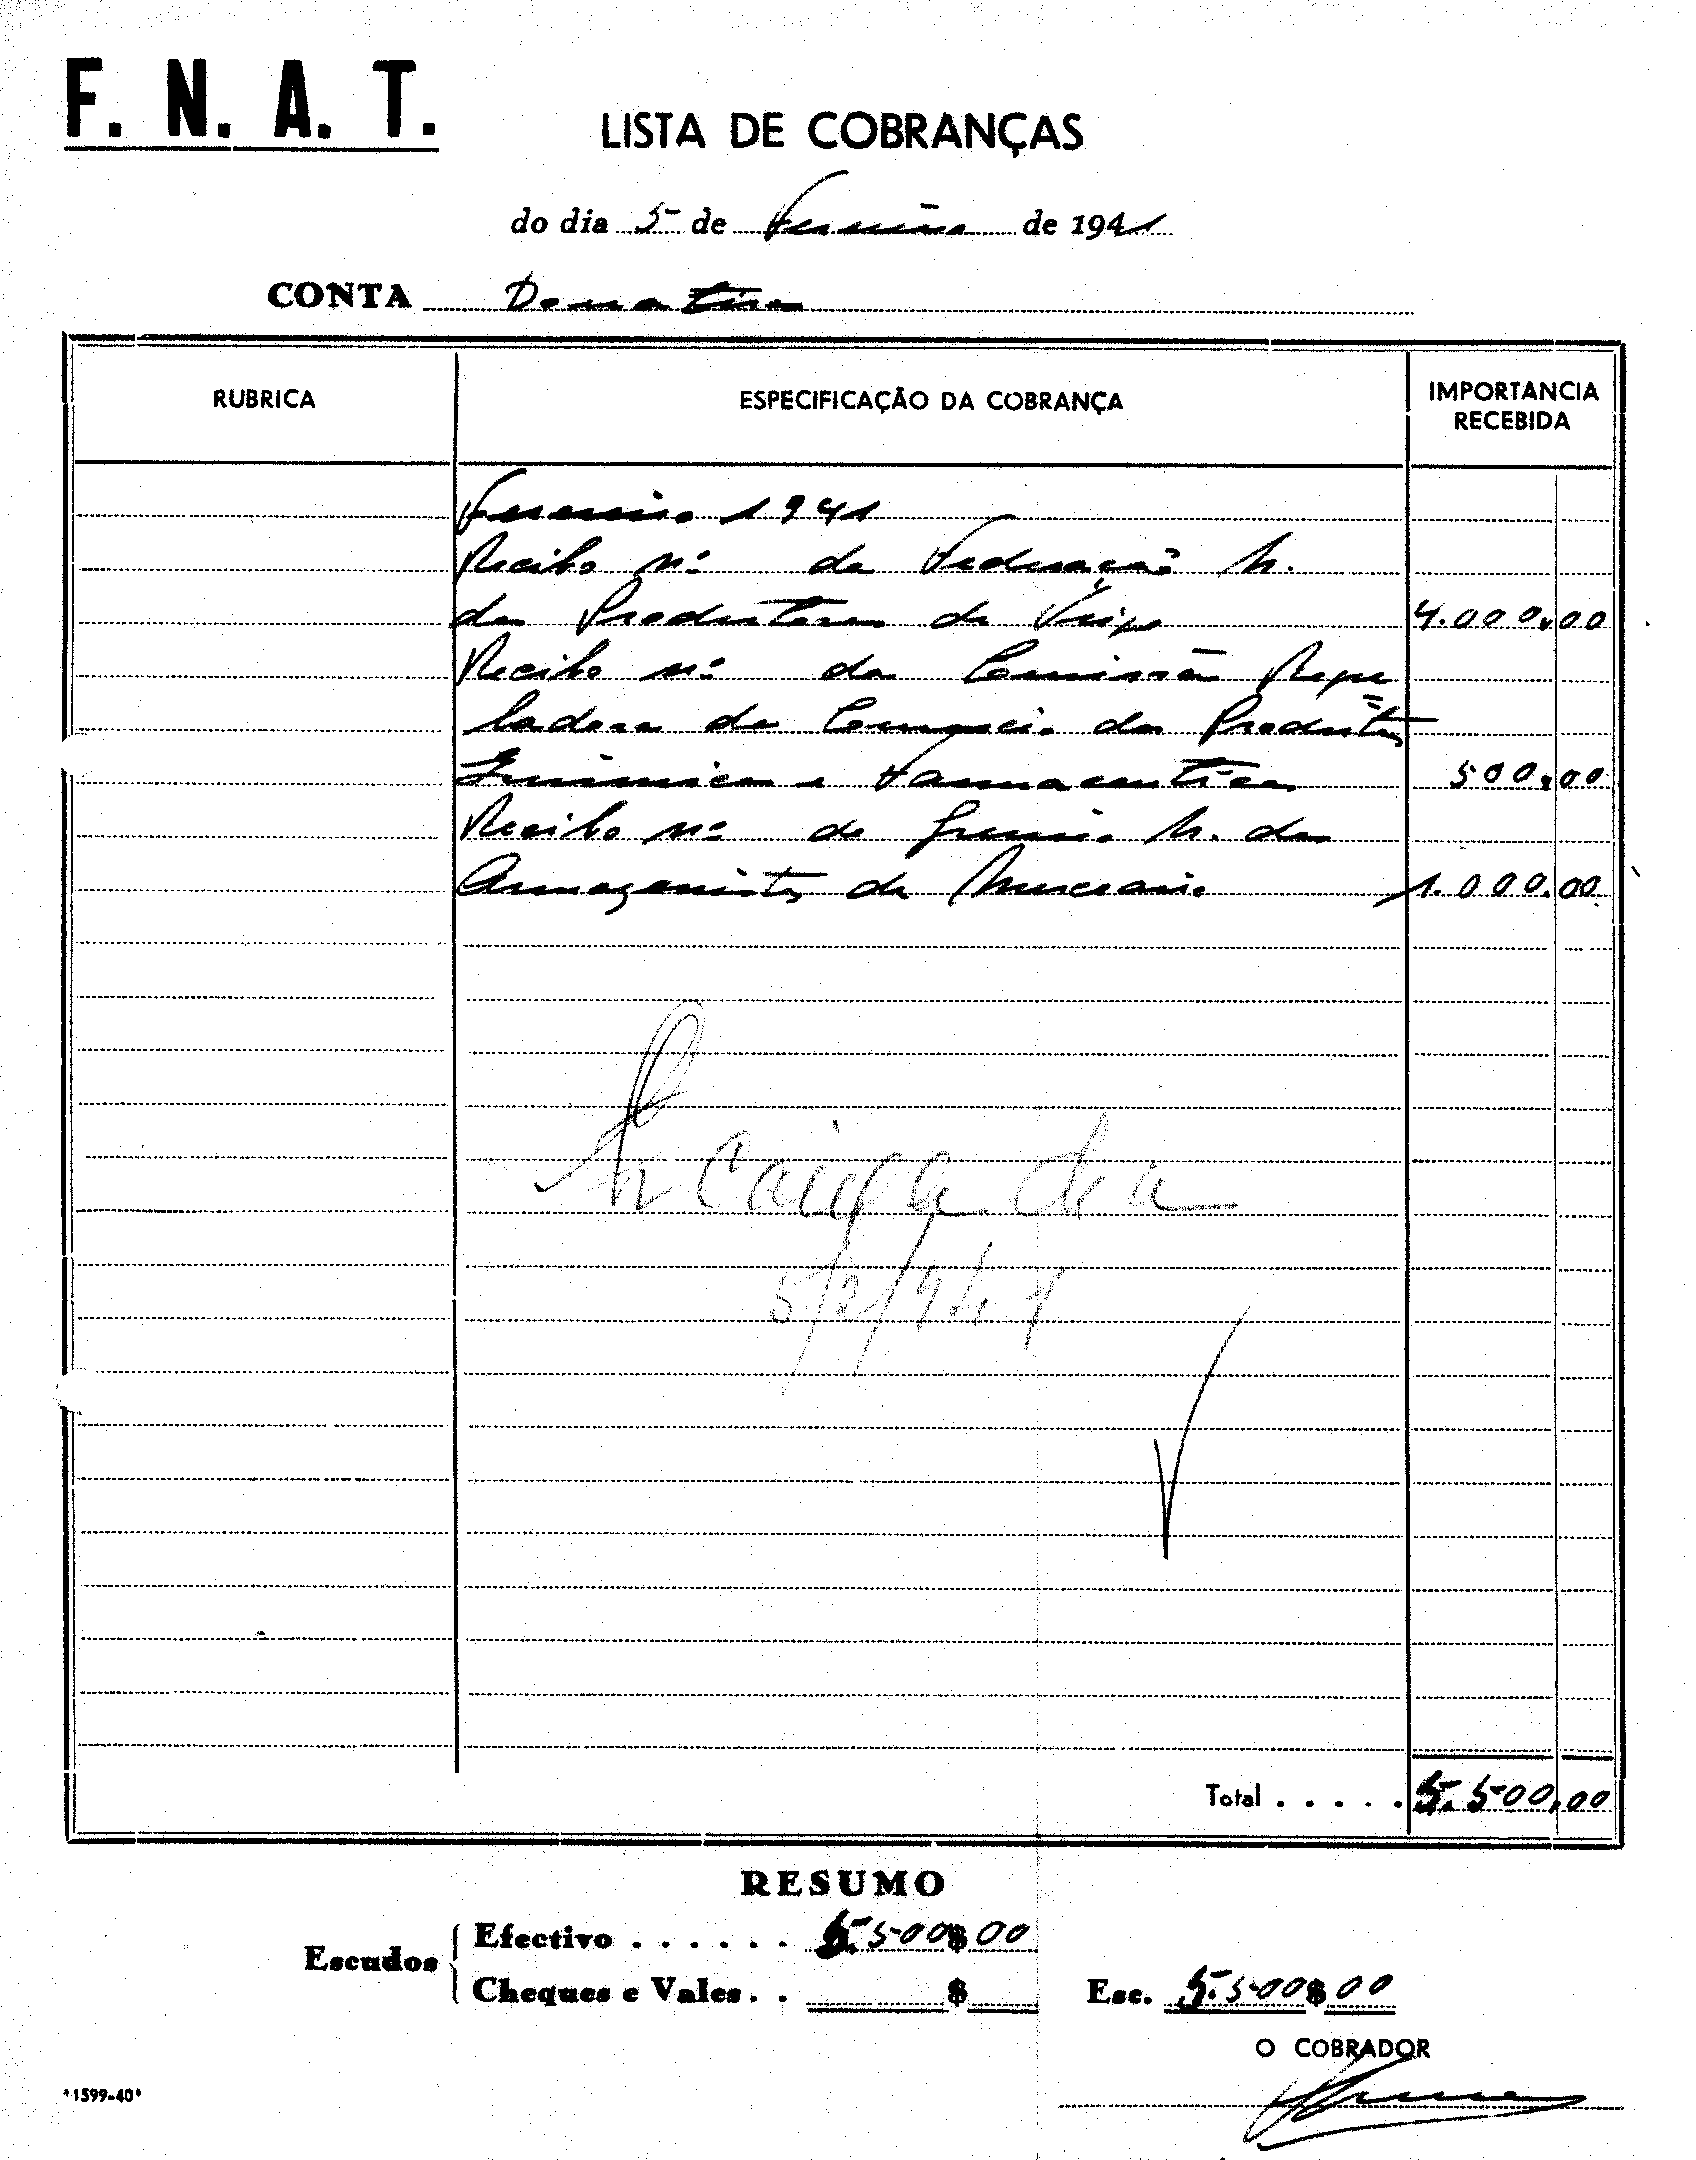 F. N. A. T.
LISTA DE COBRANÇAS
do dia 5 de Fevereiro de 1941
CONTA Donativos
RUBRICA
ESPECIFICAÇÃO DA COBRANÇA
IMPORTANCIA
RECEBIDA
Fevereiro 1941
Recibo nº da Federação N.
dos Produtores de Trigo 4.000,00
Recibo nº da Comissão Regu
ladora do Comercio dos Produtos
Quimicos e Farmaceuticos 500,00
Recibo nº do Gremio N. dos
Armazenistas de Mercearia 1.000,00
Caixa
5/2/941
Total . . . . . 5.500,00
RESUMO
Escudos
Efectivo . . . . . . 5.500$00
Cheques e Vales . . $
Esc. 5.500$00
O COBRADOR
*1599-40*